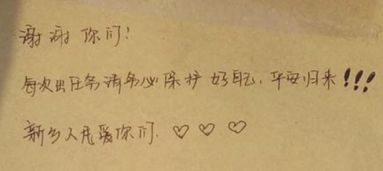 谢谢你们！
每次出任务请务必保护好自己，平安归来！！！
新乡人民爱你们.♡♡♡